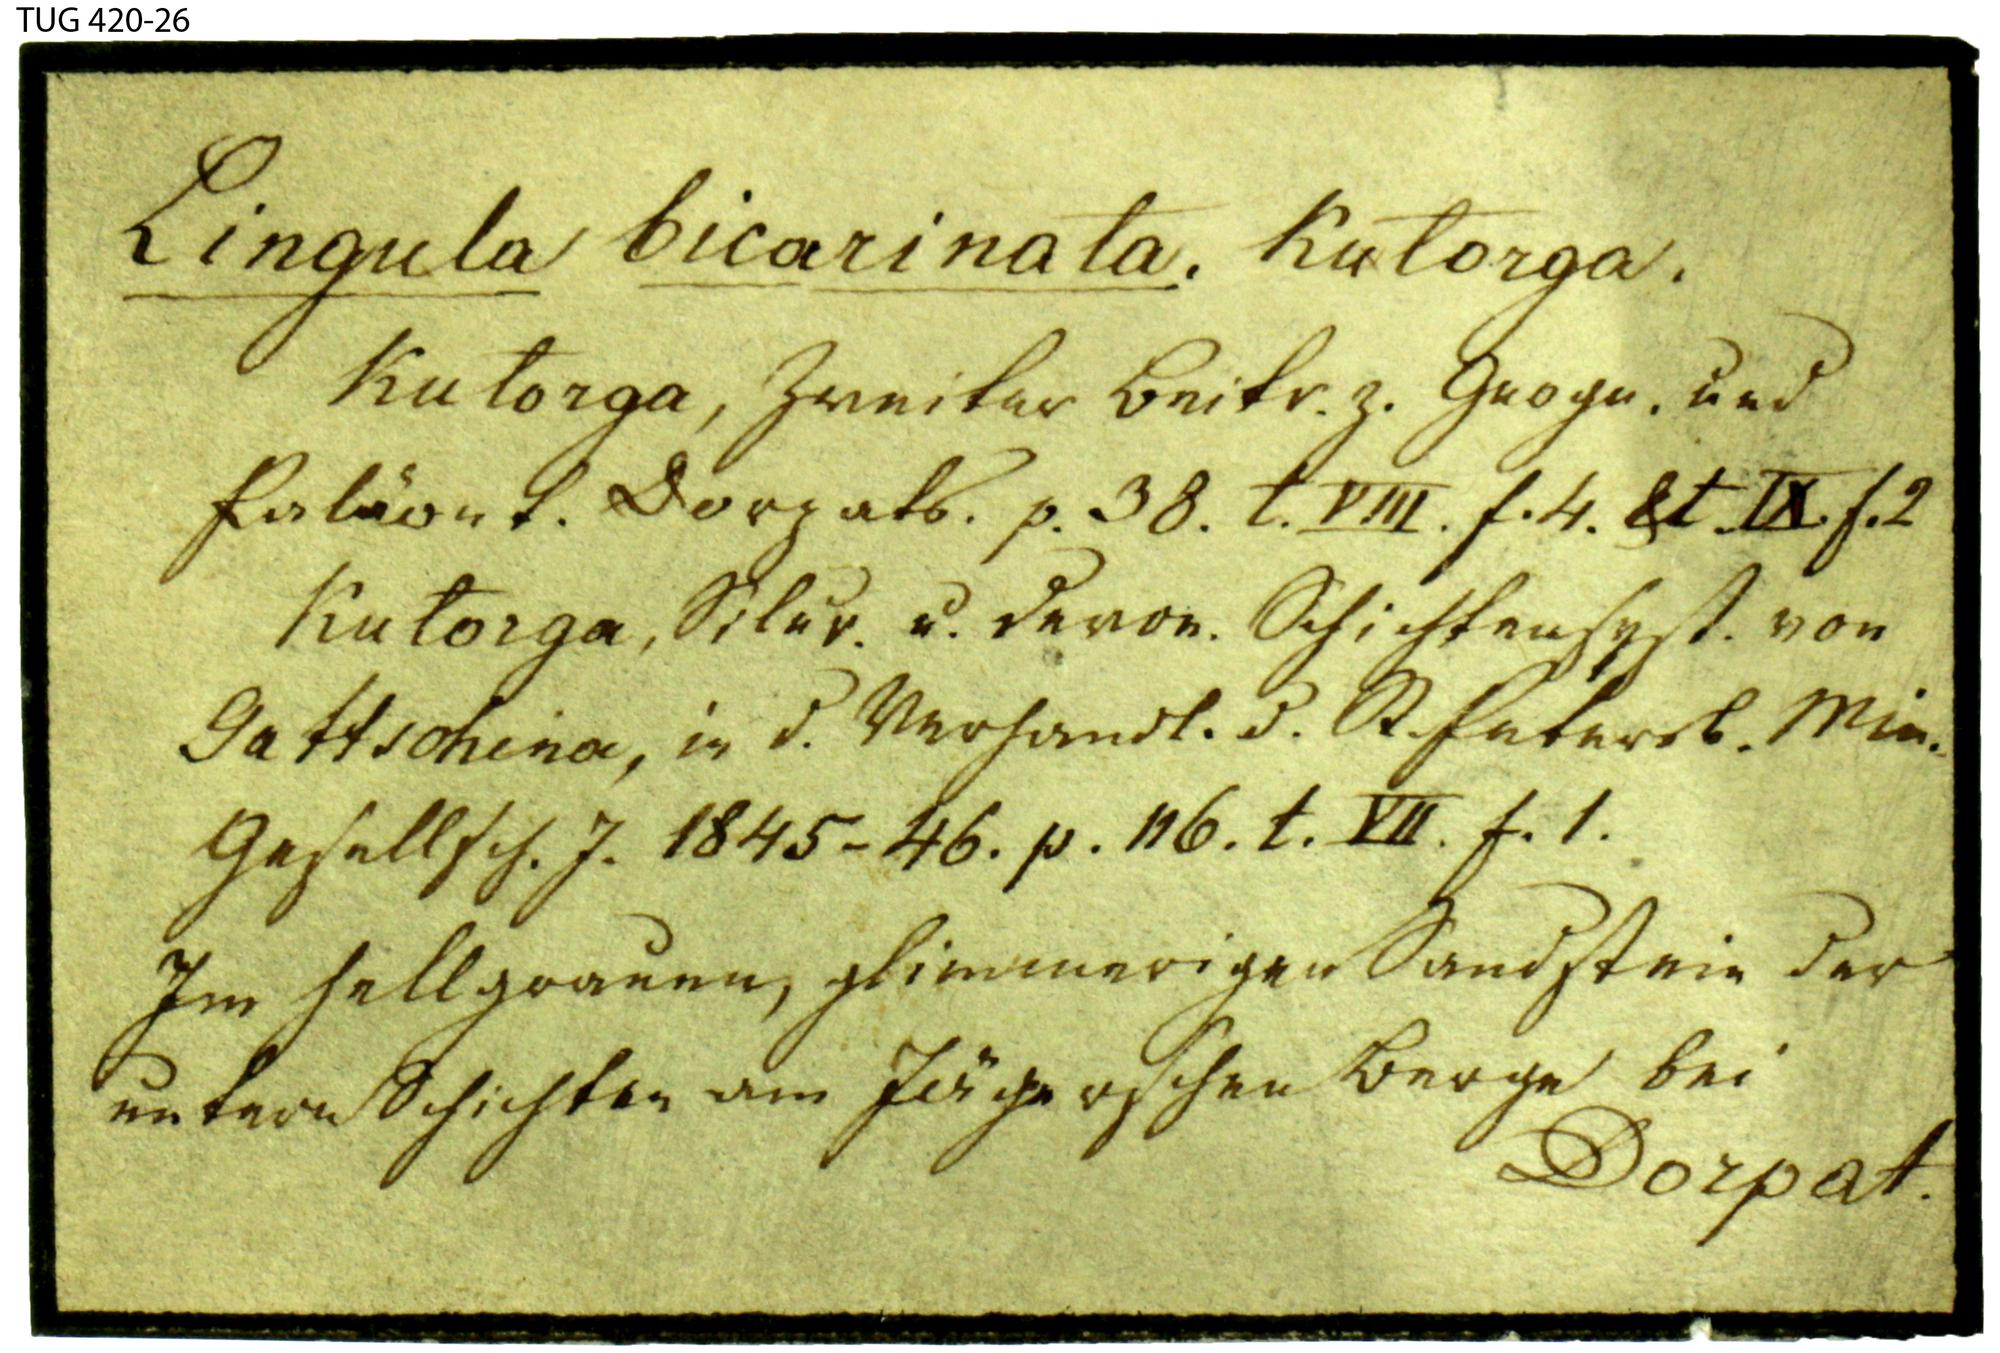 TUG 420-26
Lingula bicarinata. Kutorga.
Kutorga, Zweiter Beitr. z. Geogn. und
Paläont. Dorpats. p. 38. t. VIII. f. 4. & t. IX. f. 2
Kutorga, Silur. u. devon. Schichtensyst. von
Gattschina, in d. Verhandl. d. St. Petersb. Min.
Gesellsch. J. 1845-46. p. 116. t. VII. f. 1.
Im hellgrauen, glimmerigen Sandstein der
untern Schichten am Jägerschen Berge bei
Dorpat.